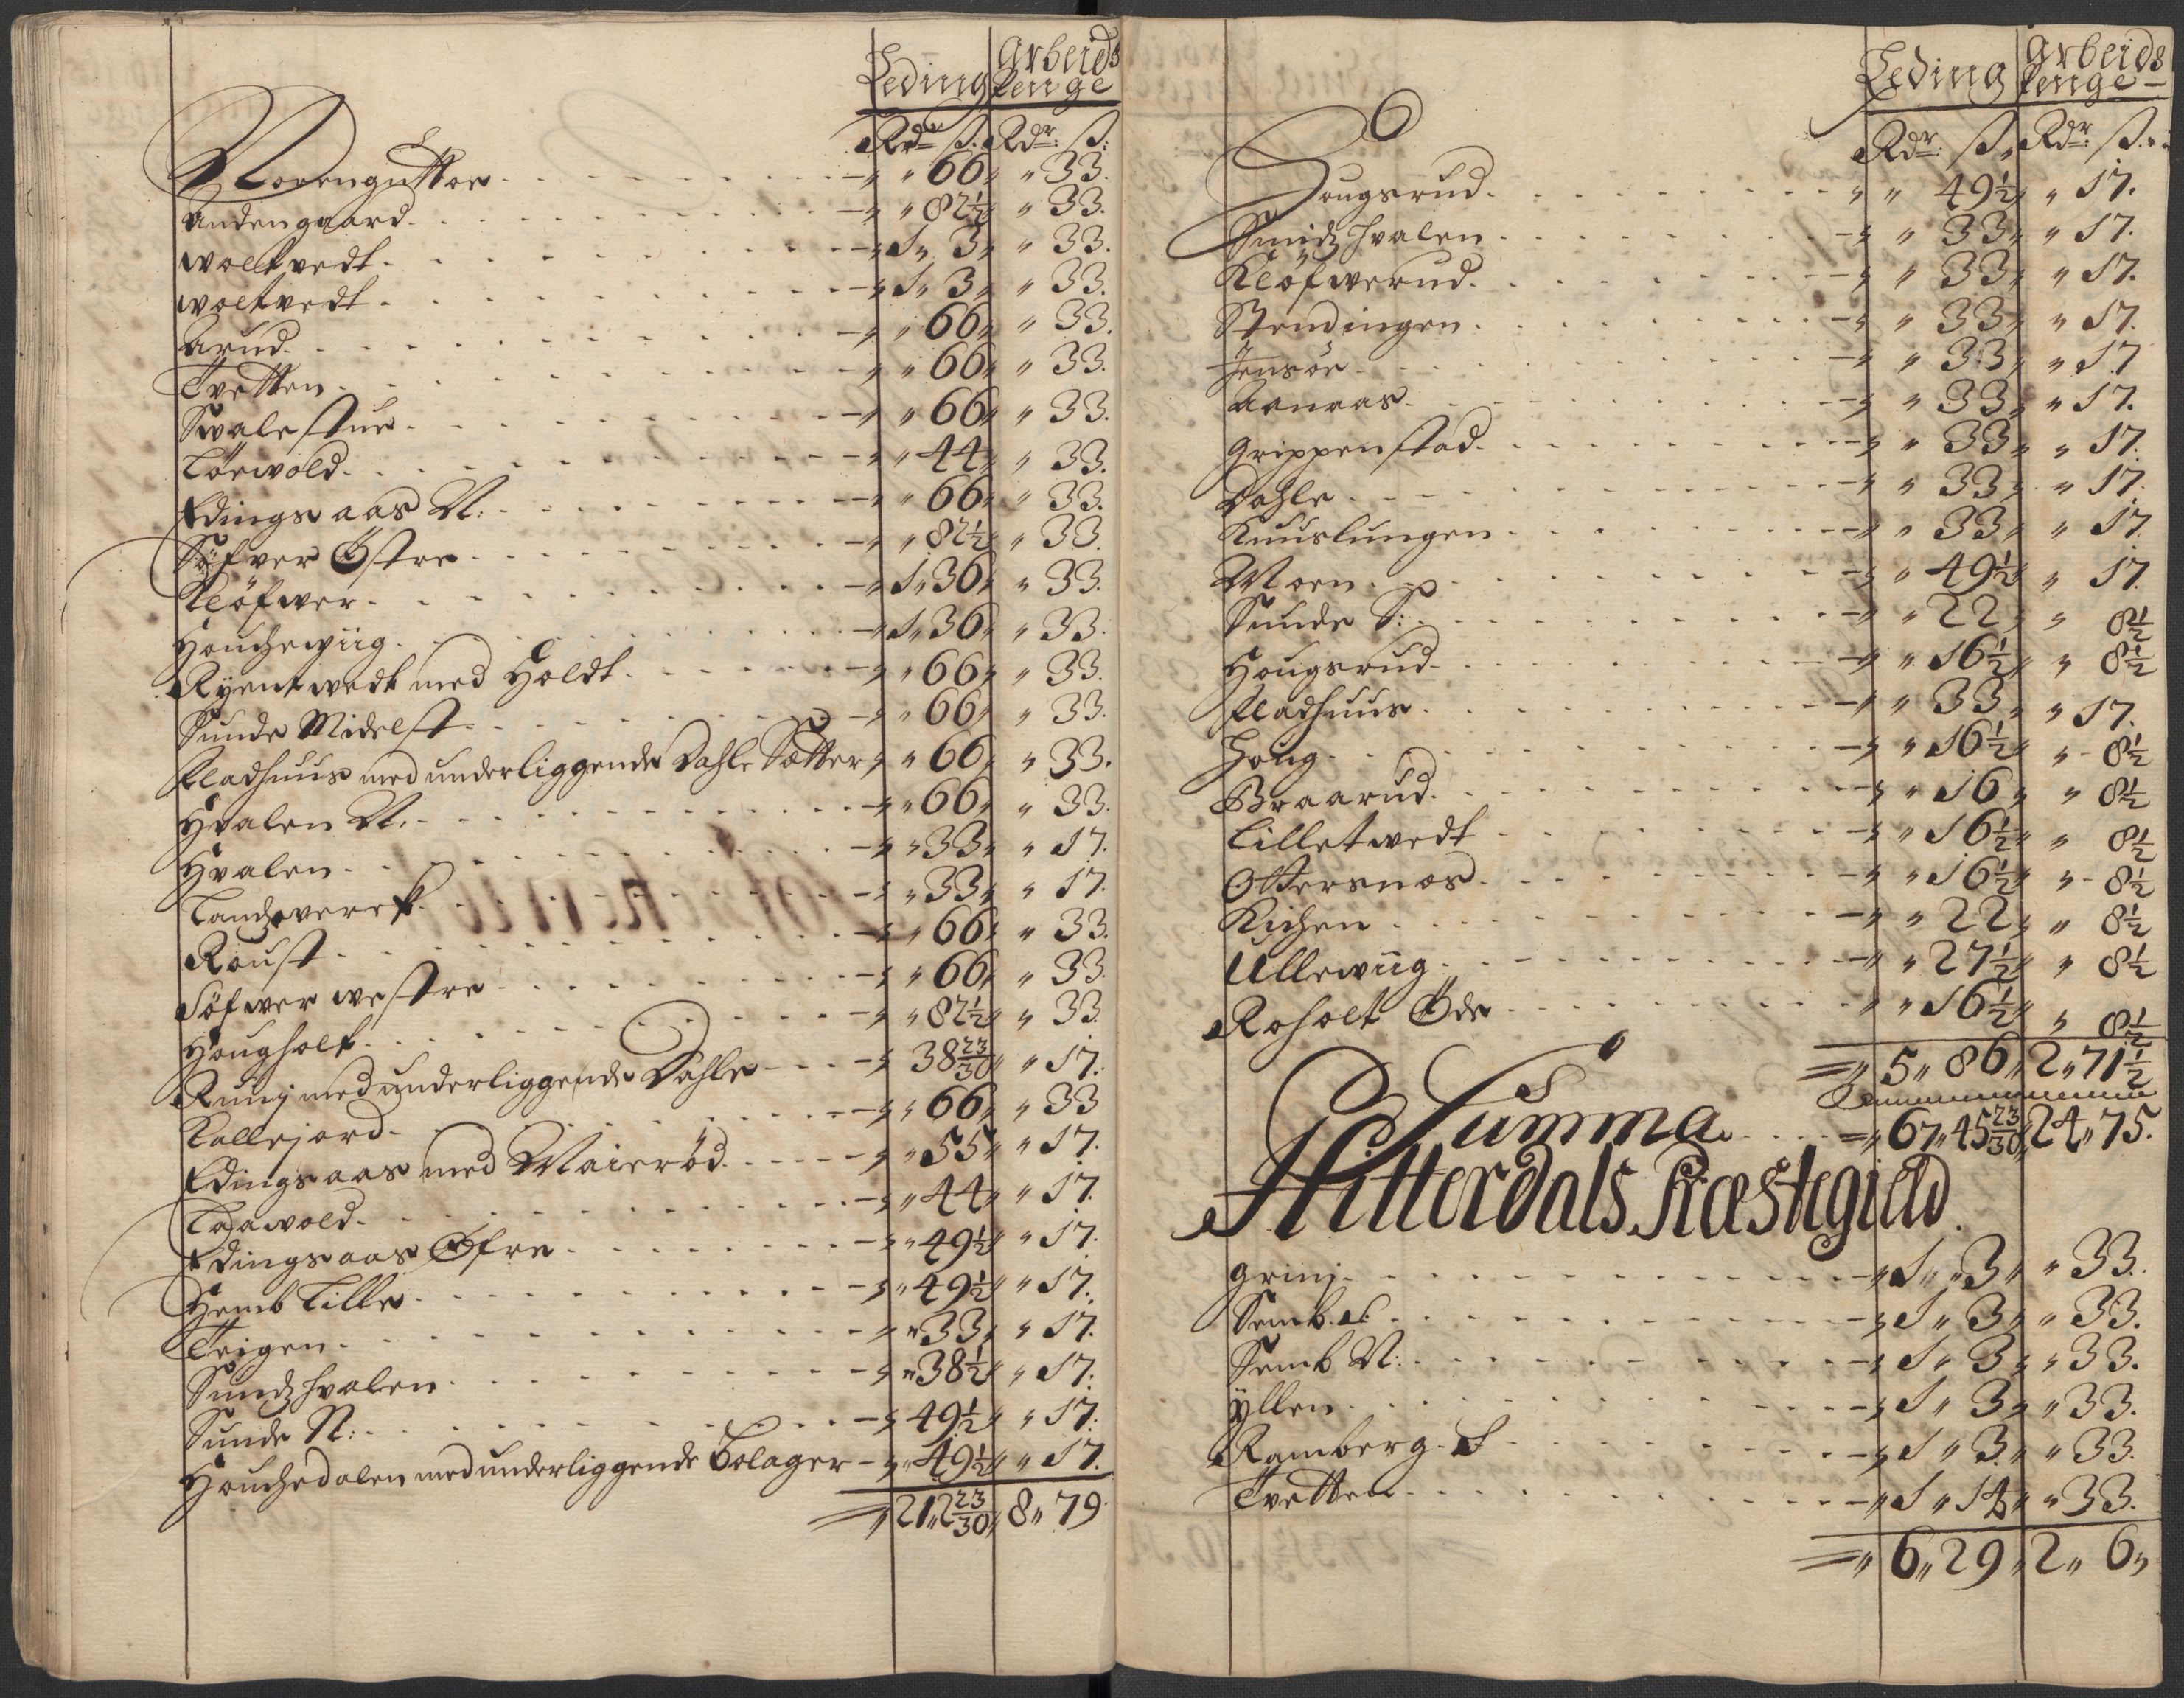 Leding Arbeids Penge
Rdr ß. Rdr: ß:
Moeenguttoe - „ „ 66 „ „ 33.
Andengaard - „ „ 82½ „ „ 33.
Woltvedt - „ 1 „ 3 „ „ 33.
Woltvedt - „ 1 „ 3 „ „ 33.
Aarud - „ „ 66 „ „ 33.
Tvetten - „ „ 66 „ „ 33.
Svalestue - „ „ 66 „ „ 33.
Torwold - „ „ 44 „ „ 33.
Edingsaas N: - „ „ 66 „ „ 33.
Söfver Östre - „ „ 82½ „ „ 33.
Klöfwer - „ 1 „ 36 „ „ 33.
Houchewiig - „ 1 „ 36 „ „ 33.
Ryentwedt med Holdt - „ „ 66 „ „ 33.
Sunde Midelst - „ „ 66 „ „ 33.
Fladhuus med underliggende Dahle Sætter „ „ 66 „ „ 33.
Hvalen N. - „ „ 66 „ „ 33.
Hvalen - „ „ 33 „ „ 17.
Landzverek - „ „ 33 „ „ 17.
Roust - „ „ 66 „ „ 33.
Söfwer westre - „ „ 66 „ „ 33.
Hougholt - „ „ 82½ „ „ 33.
Runj med underliggende Dahle - „ 38 23/30 „ „ 17.
Kallejord - „ „ 66 „ „ 33
Edingsaas med Maieröd - „ „ 55 „ „ 17.
Taawold - „ „ 44 „ „ 17.
Edingsaas Øfre - „ „ 49½ „ „ 17.
Hemb Lille - „ „ 49½ „ „ 17.
Teigen - „ „ 33 „ „ 17.
Sundz hvalen - „ „ 38½ „ „ 17.
Sunde N: - „ 49½ „ „ 17.
Houchedalen med underliggende Bolager - „ „ 49½ „ „ 17.
„ 21 „ 2 23/30 „ 8 „ 79
Leding Arbeids Penge
Rdr: ß „ Rdr: ß.
Hougsrud - „ „ 49½ „ „ 17.
Smidz hvalen - „ „ 33 „ „ 17.
Klöfwerud - „ „ 33 „ „ 17.
Stendingen - „ „ 33 „ „ 17.
Jensöe - „ „ 33 „ „ 17
Aanaas - „ „ 33 „ „ 17.
Grippenstad - „ „ 33 „ „ 17.
Dahle - „ „ 33 „ „ 17.
Kuuslungen - „ „ 33 „ „ 17.
Moen - „ „ 49½ „ „ 17.
Sunde S: - „ „ 22 „ „ 8½
Hougsrud - „ „ 16½ „ „ 8½
Fladhuus - „ „ 33 „ „ 17.
Houg - „ „ 16½ „ „ 8½
Braarud - „ „ 16 „ „ 8½
Lilletwedt - „ „ 16½ „ „ 8½
Ottersnæs - „ „ 16½ „ „ 8½
Kichen - „ „ 22 „ „ 8½
Ullewiig - „ „ 27½ „ „ 8½
Roholt Öde - „ „ 16½ „ „ 8½
„ 5 „ 86 „ 2 „ 71½
Summa - „ 67 „ 45 23/30 „ 24 „ 75.
Hitterdals Præstegield.
Grinj - „ 1 „ 3 „ „ 33.
Semb. S. - „ 1 „ 3 „ „ 33.
Semb N: - „ 1 „ 3 „ „ 33.
Yllen - „ 1 „ 3 „ „ 33.
Ramberg. S - „ 1 „ 3 „ „ 33.
Tvetten - „ 1 „ 14 „ „ 33.
„ 6 „ 29 „ 2 „ 6 „